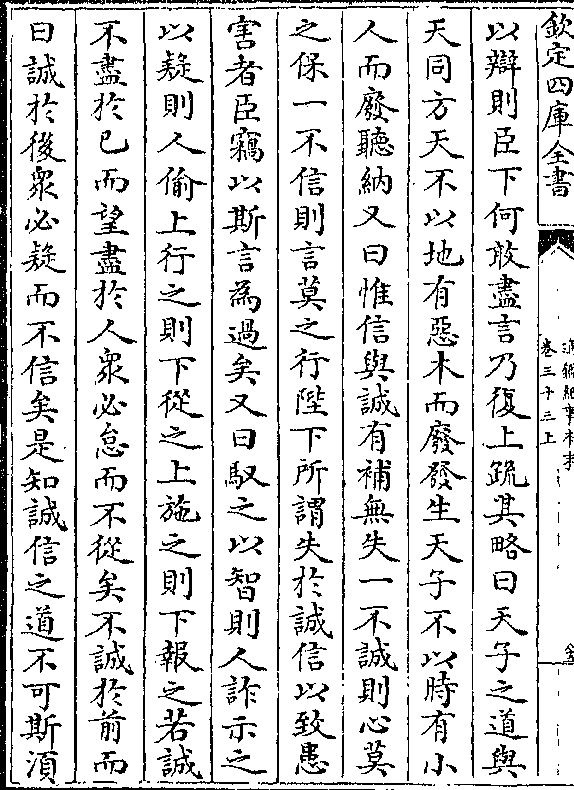 欽定四庫全書
卷三十三上
以辯則臣下何敢盡言乃復上疏其略曰天子之道與
天同方天不以地有惡木而廢發生天子不以時有小
人而廢聽納又曰惟信與誠有補無失一不誠則心莫
之保一不信則言莫之行陛下所謂失於誠信以致患
害者臣竊以斯言為過矣又曰馭之以智則人詐示之
以疑則人偷上行之則下從之上施之則下報之若誠
不盡於已而望盡於人衆必怠而不從矣不誠於前而
曰誠於後衆必疑而不信矣是知誠信之道不可斯湏